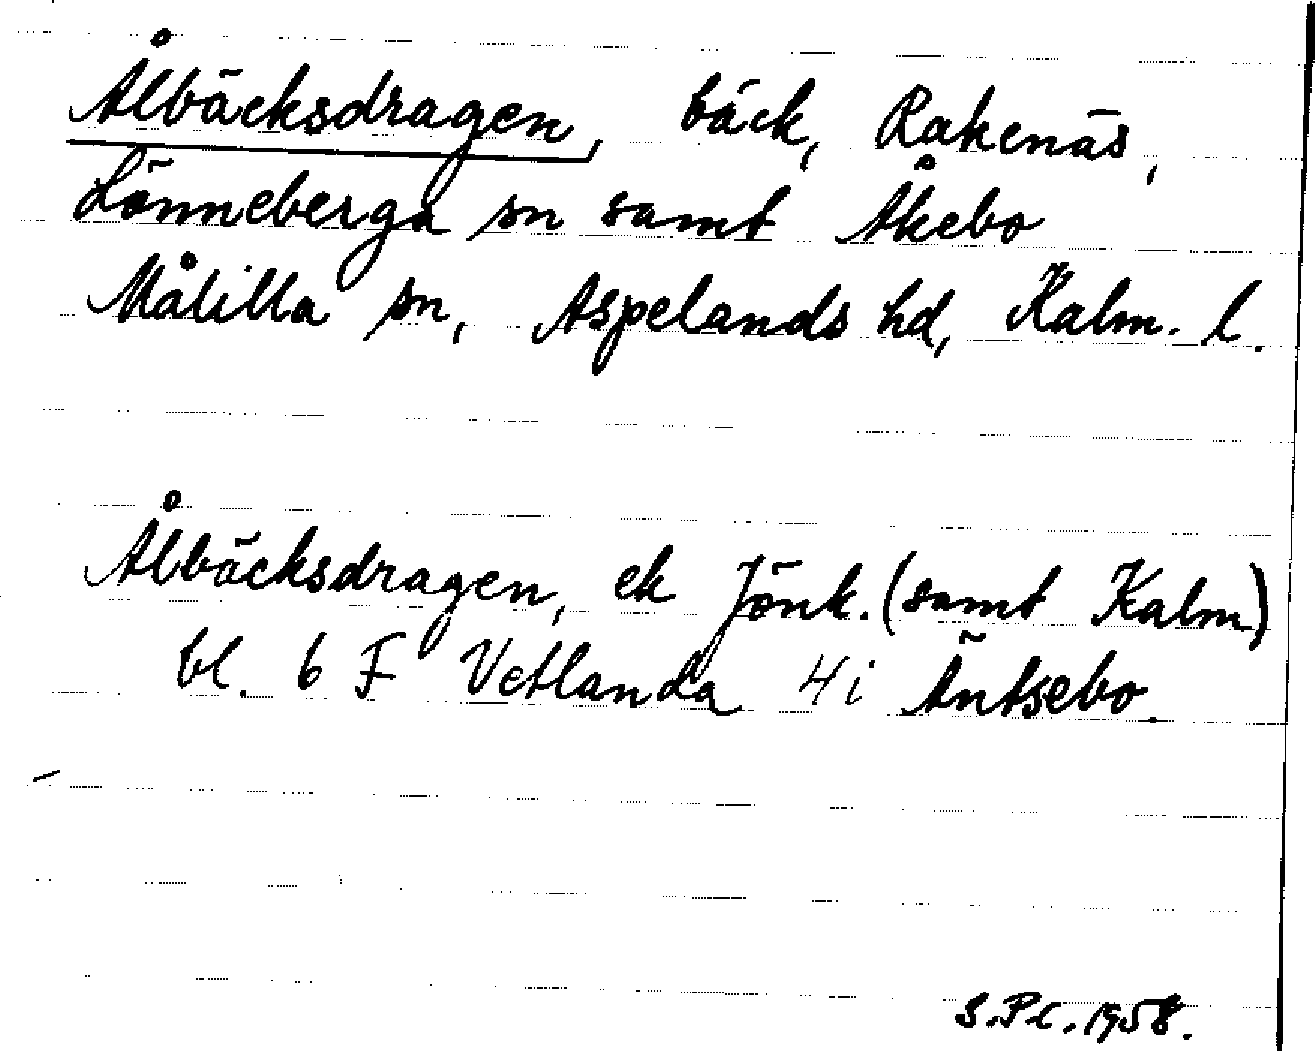 Ålbäcksdragen, bäck, Rakenäs,
Lönneberga sn samt Åkebo
Målilla sn, Aspelands hd, Kalm. l.
Ålbäcksdragen, ek Jönk. (samt Kalm)
bl. 6 F Vetlanda 4i Äntsebo.
S.P.C. 1958.